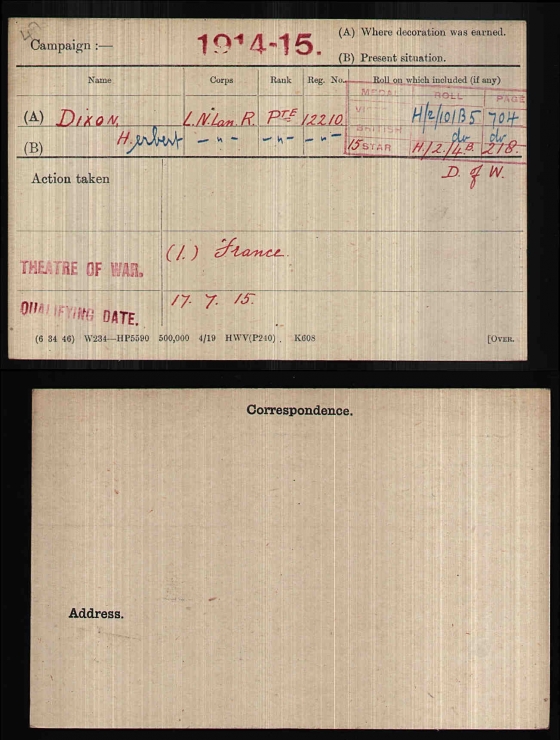 Campaign :— 1914-15. (A) Where decoration was earned.
(B) Present situation.
Name Corps Rank Reg. No. Roll on which included (if any)
MEDAL ROLL PAGE
(A) Dixon. L.N.Lan.R. PTE 12210. VI H/2/101B5 704
(B) Herbert —"— —"— —"— BRITISH do do
15 STAR H/2/4B. 218.
Action taken D. of W.
THEATRE OF WAR. (1.) France.
QUALIFYING DATE. 17. 7. 15.
(6 34 46) W234—HP5590 500,000 4/19 HWV(P240) K608 [OVER.
Correspondence.
Address.